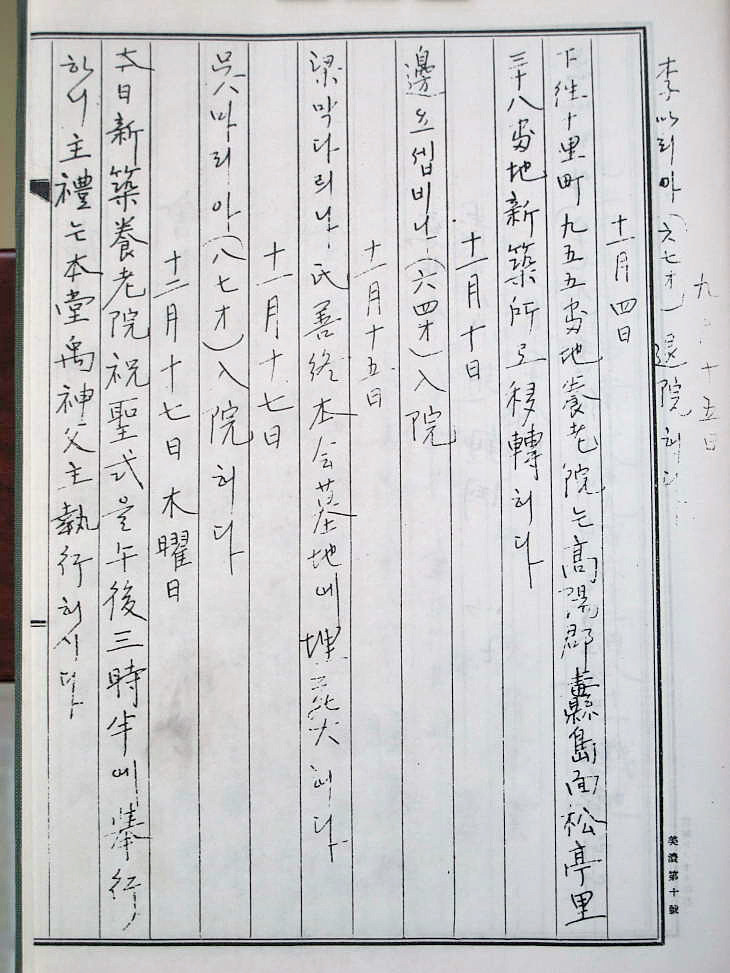 九月十五日
李마리아(六七才) 退院하다
十一月四日
下往十里町九五五番地養老院는高陽郡纛島面松亭里
三十八番地新築所로移轉하다
十一月十日
邊요셉비나(六四才)入院
十一月十五日
梁막다리나氏善終本会墓地에埋葬하다
十一月十七日
吳마리아(八七才)入院하다
十二月十七日木曜日
本日新築養老院祝聖式을午後三時半에擧行
하니主禮는本堂禹神父主執行하시다
美濃第十號